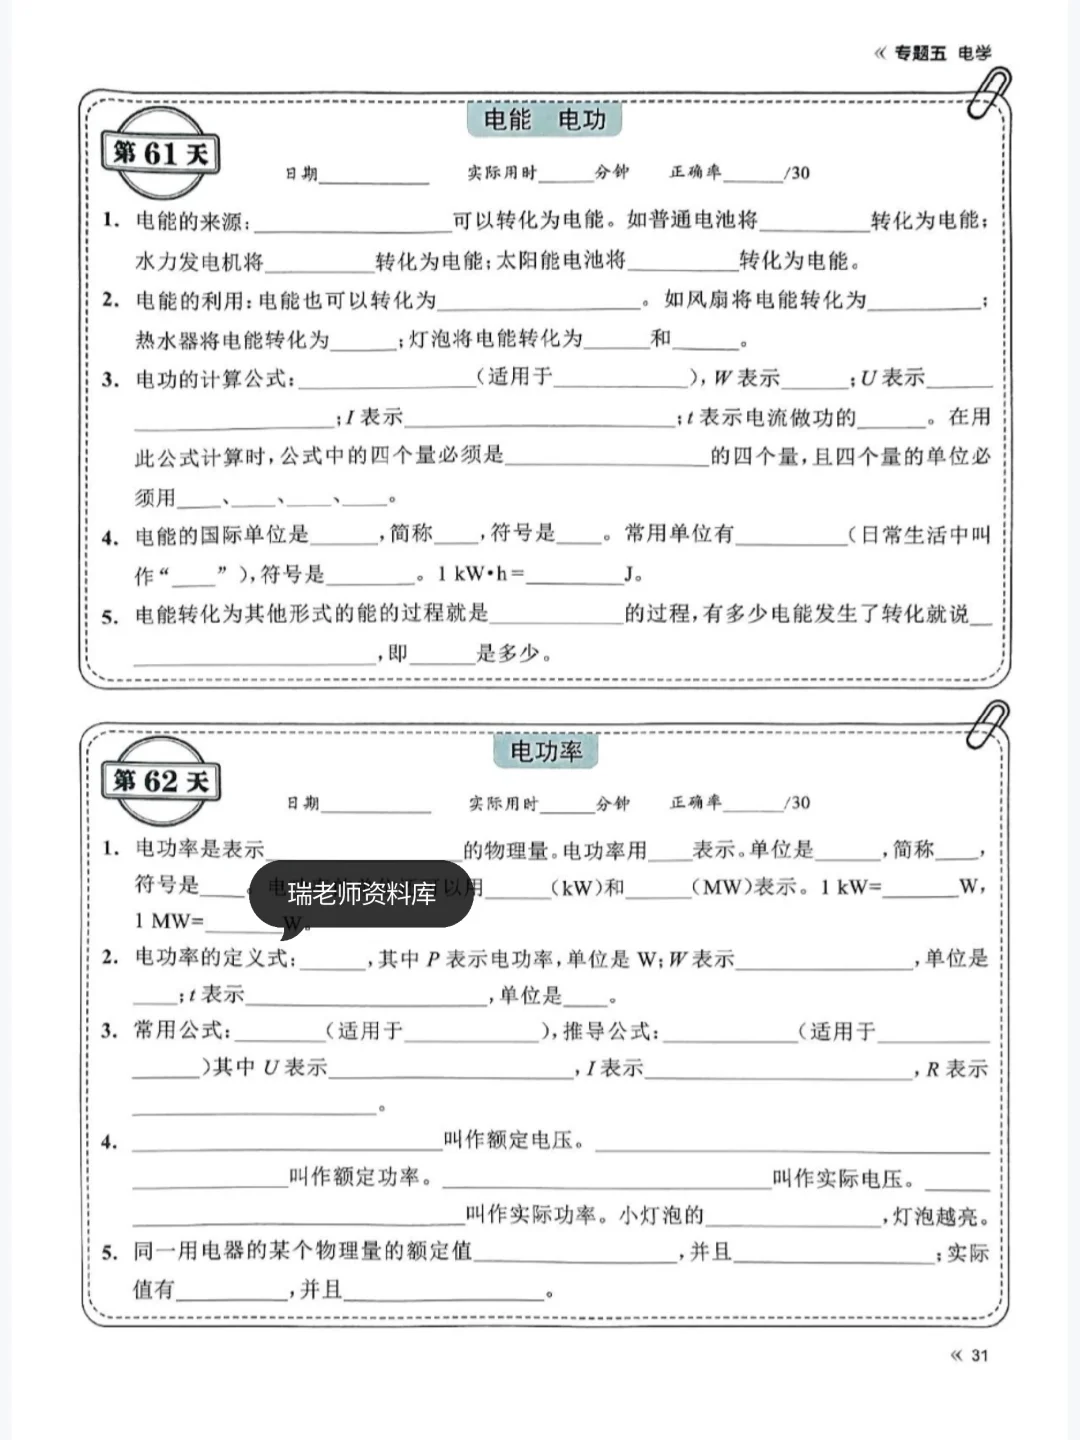 专题五 电学
电能 电功
第 61 天
日期__________ 实际用时_____分钟 正确率_____/30
1. 电能的来源:__________________可以转化为电能。如普通电池将__________转化为电能;
水力发电机将__________转化为电能;太阳能电池将__________转化为电能。
2. 电能的利用:电能也可以转化为__________________。如风扇将电能转化为__________;
热水器将电能转化为______;灯泡将电能转化为______和______。
3. 电功的计算公式:________________(适用于____________),W 表示______;U 表示______
__________________;I 表示________________________;t 表示电流做功的______。在用
此公式计算时,公式中的四个量必须是__________________的四个量,且四个量的单位必
须用____、____、____、____。
4. 电能的国际单位是______,简称____,符号是____。常用单位有__________(日常生活中叫
作“____”),符号是________。1 kW·h=_________J。
5. 电能转化为其他形式的能的过程就是____________的过程,有多少电能发生了转化就说__
______________________,即______是多少。
电功率
第 62 天
日期__________ 实际用时_____分钟 正确率_____/30
1. 电功率是表示__________________的物理量。电功率用____表示。单位是______,简称____,
符号是____。 以用_____(kW)和______(MW)表示。1 kW=_______W,
瑞老师资料库
1 MW=_______W。
2. 电功率的定义式:______,其中 P 表示电功率,单位是 W;W 表示________________,单位是
____;t 表示______________________,单位是____。
3. 常用公式:________(适用于____________),推导公式:____________(适用于__________
______)其中 U 表示______________________,I 表示________________________,R 表示
______________________。
4. ____________________________叫作额定电压。____________________________________
______________叫作额定功率。______________________________叫作实际电压。______
______________________________叫作实际功率。小灯泡的________________,灯泡越亮。
5. 同一用电器的某个物理量的额定值__________________,并且__________________;实际
值有__________,并且__________________。
31